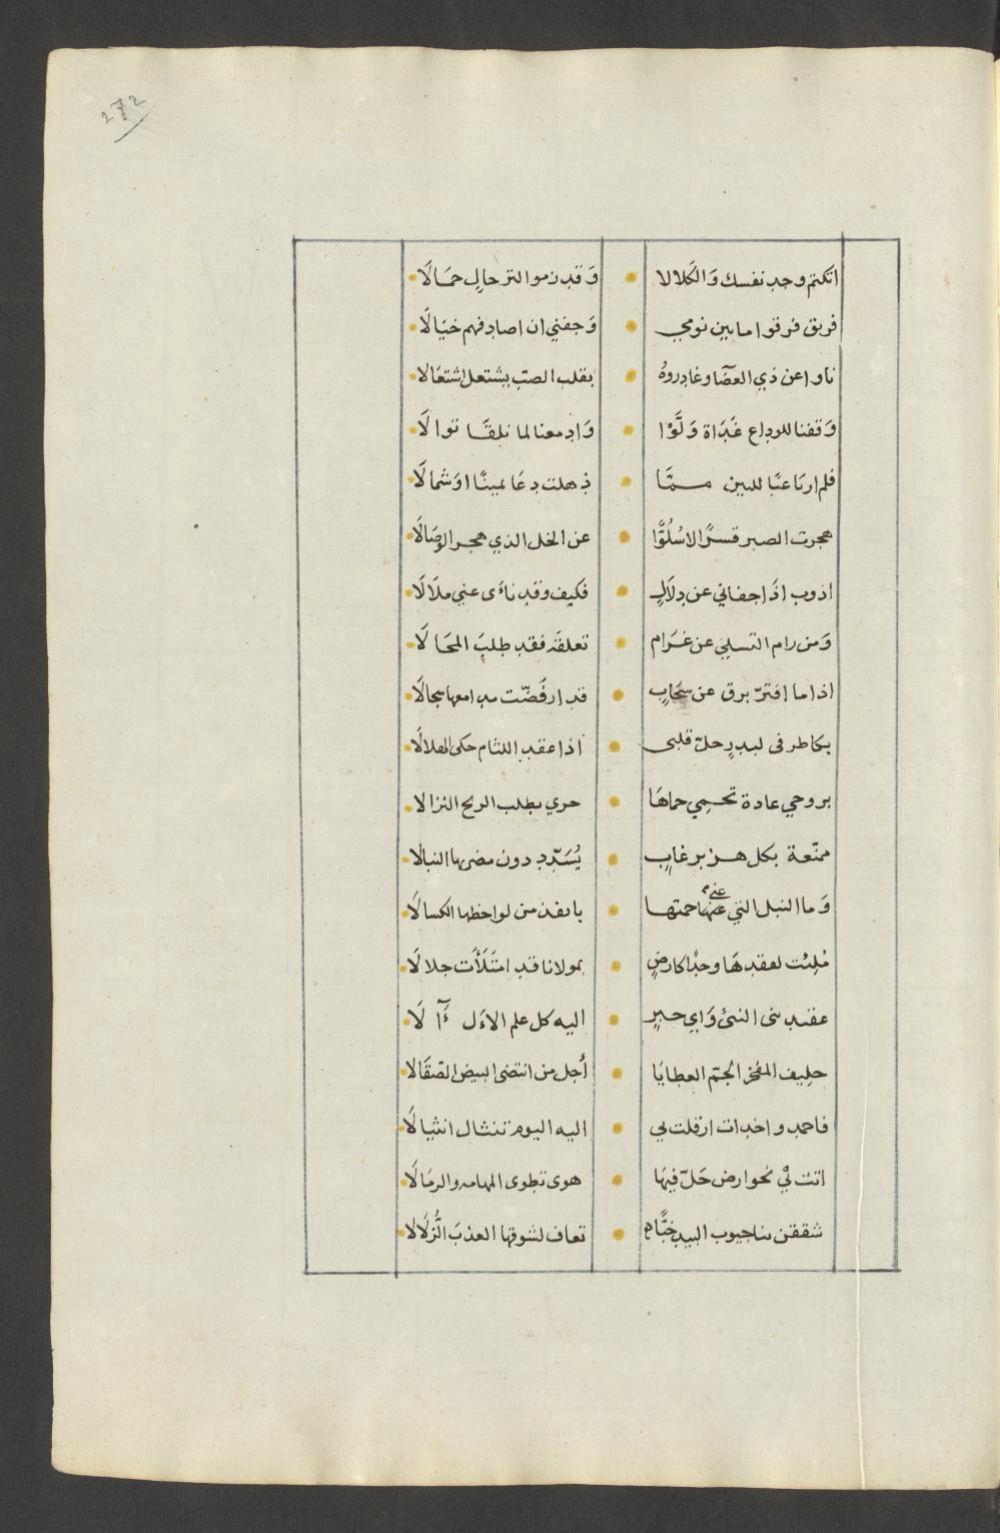 ٢٧٢
اتكتم وجد نفسك وَالكَلالا • وَقد زموا الترحالِ جمَالَا
فريق فرقوا مابين نومي • وَجفني ان اصادفهم خيَالَا
ناوا عن ذي الغضَا وغادروهُ • بقلب الصبّ يشتعل اشتعَالا
وَقفنا للوداع غَدَاة وَلَّوْا • وَادمعنا لما نلقَا توالَا
فلم ارنَاعبًا للبين ممّا • ذهلت دعَا يمينًا اوَشمالَا
هجرت الصبر قسرًا لاسُلُوًّا • عن الخل الذي هجر الوصَالَا
اذوب اذَا جفاني عن دلَالٍ • فكيف وقد ناءَى عني ملَالَا
وَمن رام التسلي عن غرَام • تعلقَه فقد طلبَ المحَالَا
اذا ما افترّ برق عن سحَابٍ • قد ارفَضّت مدامعها سجالَا
بكاطر فى لبدرٍ حلّ قلبى • اذا عقد اللثام حكى الهلالَا
بروحي غادة تحمِي حماهَا • حري يطلب الريح النزالا
ممنّعة بكل هزبر غابٍ • يُسَدّد دون مضربها النبالَا
وَما النبل التي عنها حمتها • بانفذ من لواحظها الكسالَا
مُلِئت لعقدهَا وحدًا كارضٍ • بمولانا قد امتَلَأت جلالَا
عقيد بنى النبئ وَاي حبرٍ • اليه كل علم الاوَل ءَآلَا
حليف المفخر الجمّ العطايَا • أجل من انتضى البيض الصّقَالَا
فاحمد واخدات ارقلت بي • اليه اليوم تنثال انثيالَا
اتت في نحو ارض حَلّ فيهَا • هوى تطوى المهامه والرمَالَا
شققن بنا جيوب البيد ختَّام • تعاف لشوقها العذبَ الزُّلَالَا